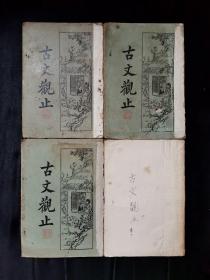 古文觀止
古文觀止
古文觀止
古文觀止